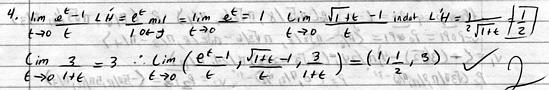 4. lim t→0 (e^t - 1)/t L'H = lim t→0 e^t = 1 lim t→0 (√(1+t) - 1)/t indet L'H = 1/(2√(1+t)) = 1/2
lim t→0 3/(1+t) = 3 ∴ lim t→0 ((e^t - 1)/t, (√(1+t) - 1)/t, 3/(1+t)) = (1, 1/2, 3) ✓ 2